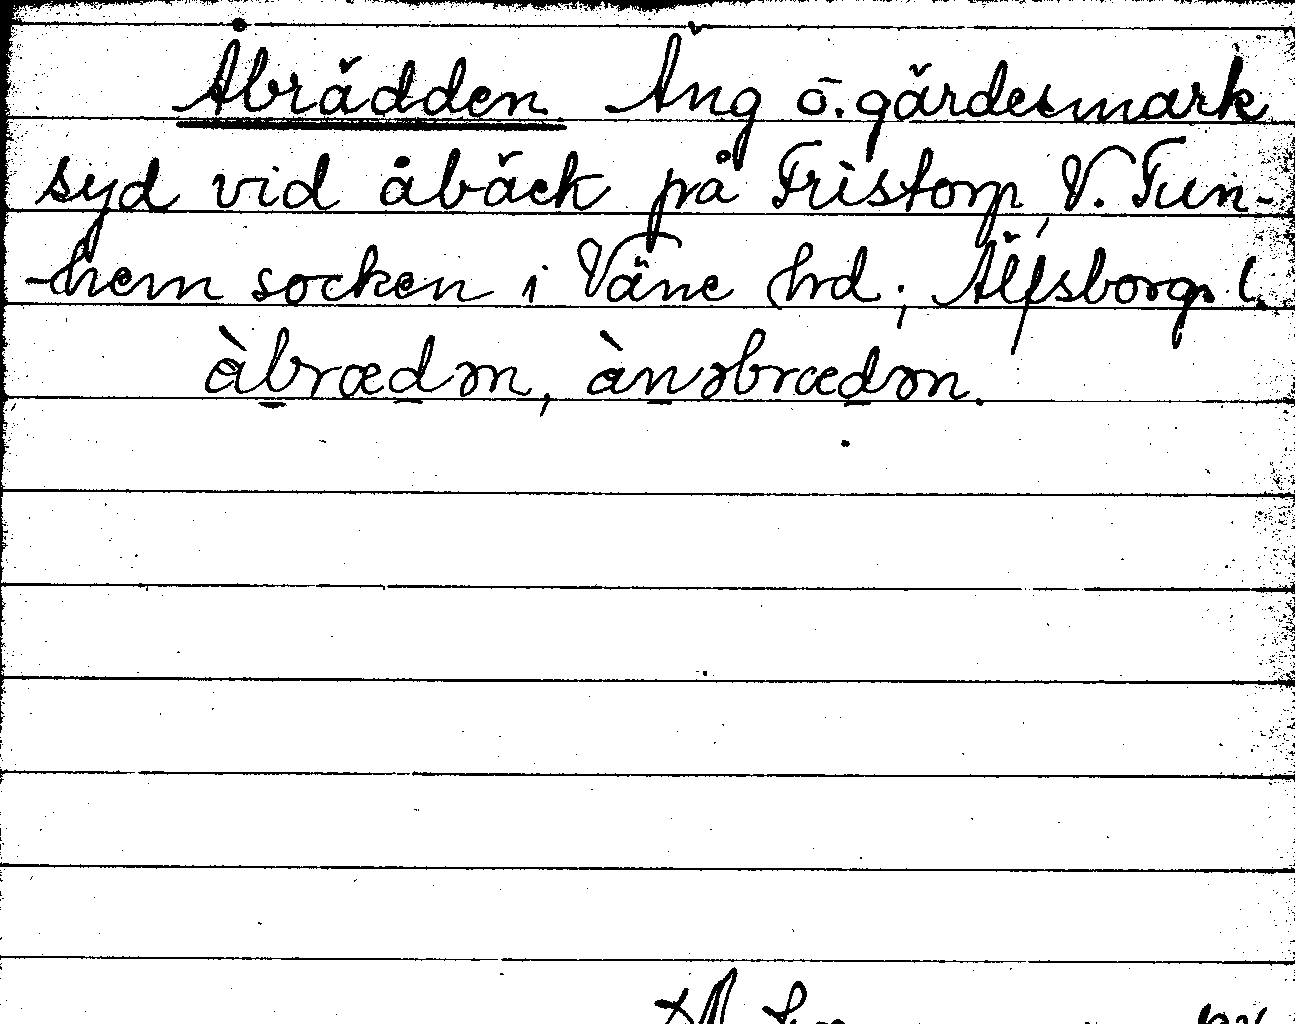 Åbrädden. Äng o. gärdesmark
syd vid åbäck på Fristorp, V. Tun-
-hem socken i Väne hrd; Älfsborgs l.
àbrædən, ànəbrædən.